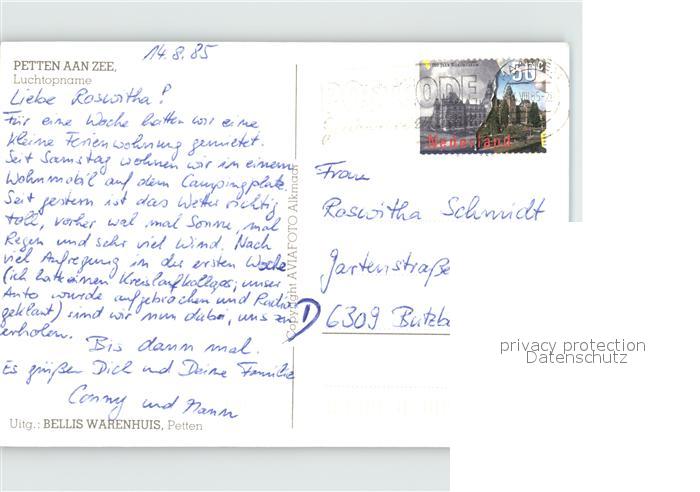 14.8.85
PETTEN AAN ZEE,
Luchtopname
Liebe Roswitha!
Für eine Woche hatten wir eine
kleine Ferienwohnung gemietet.
Seit Samstag wohnen wir in einem
Wohnmobil auf dem Campingplatz.
Seit gestern ist das Wetter richtig
toll, vorher wal mal Sonne, mal
Regen und sehr viel Wind. Nach
viel Aufregung in der ersten Woche
(ich hatte einen Kreislaufkollaps, unser
Auto wurde aufgebrochen und Radio
geklaut) sind wir nun dabei, uns zu
erholen.
Bis dann mal.
Es grüßen Dich und Deine Familie
Conny und Mann
Uitg.: BELLIS WARENHUIS, Petten
Copyright AVIAFOTO Alkmaar
Nederland
50
Frau
Roswitha Schmidt
Gartenstraße
D 6309 Butzba
privacy protection
Datenschutz